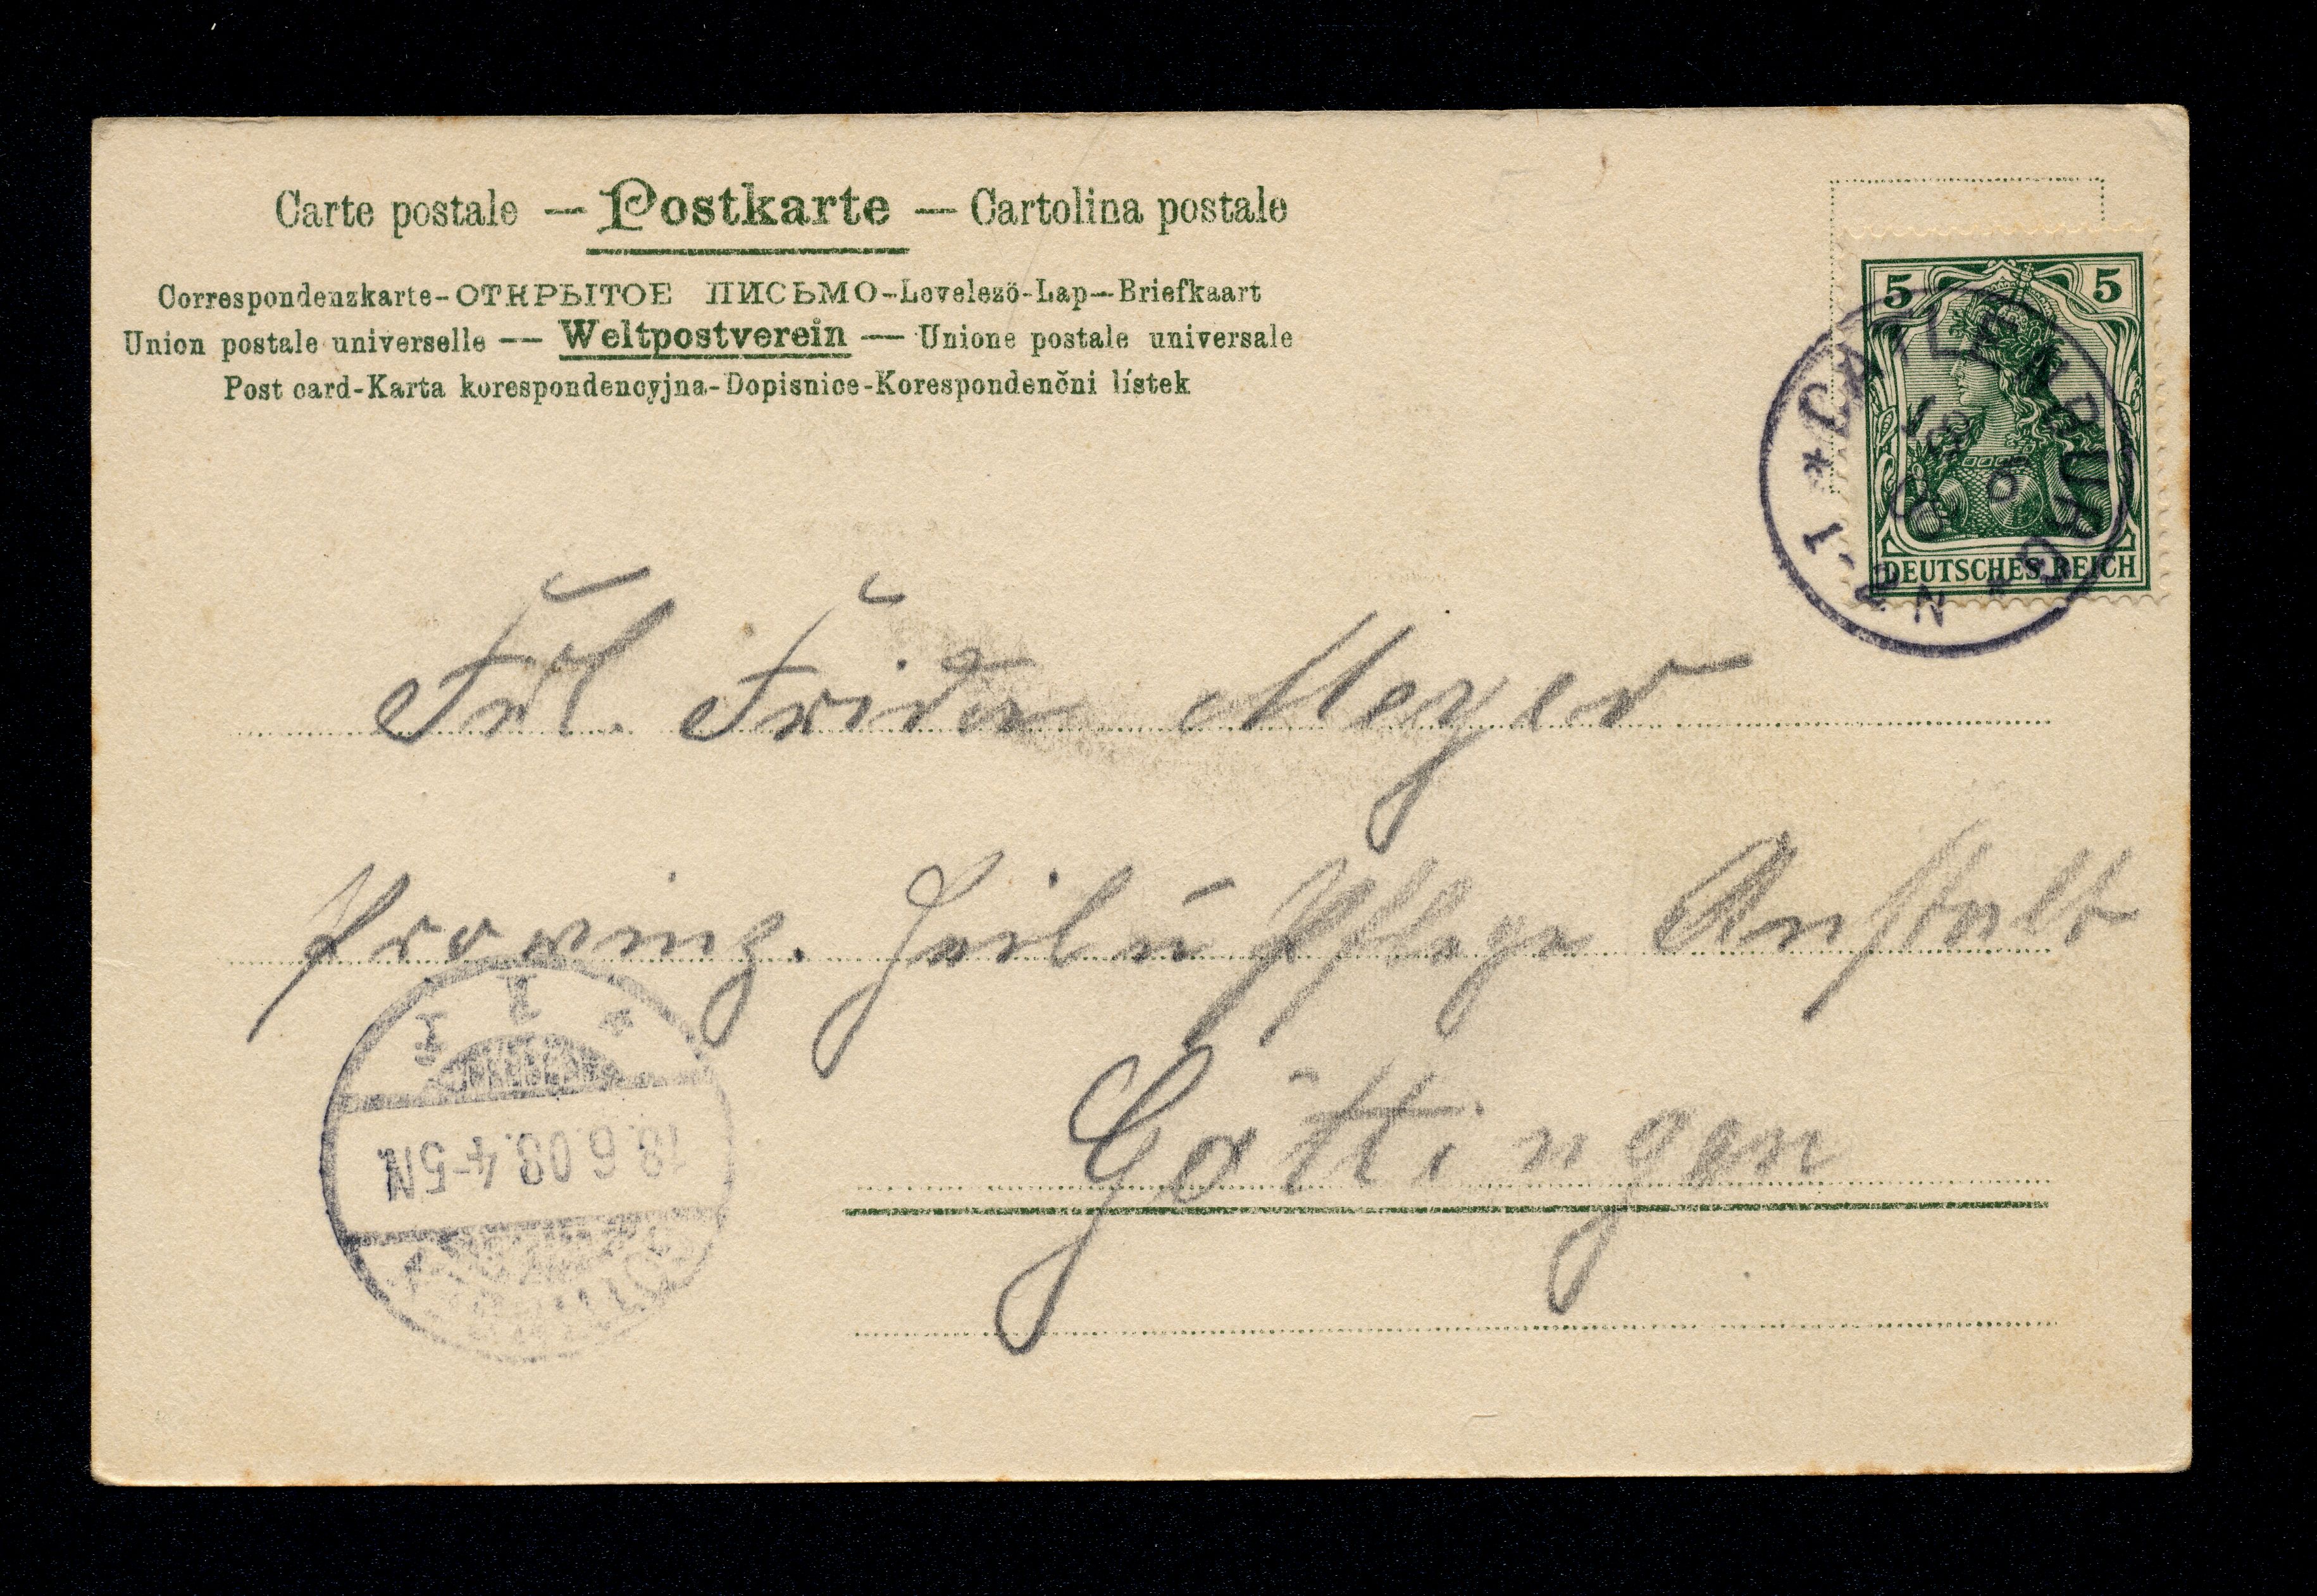 Carte postale — Postkarte — Cartolina postale
Correspondenzkarte-ОТКРЫТОЕ ПИСЬМО-Levelező-Lap—Briefkaart
Union postale universelle — Weltpostverein — Unione postale universale
Post card-Karta korespondencyjna-Dopisnice-Korespondenčni lístek
5 5
DEUTSCHES REICH
Frl. Frida Meyer
Provinz. Heil u Pflege Anstalt
Göttingen
18.6.08.4-5N.